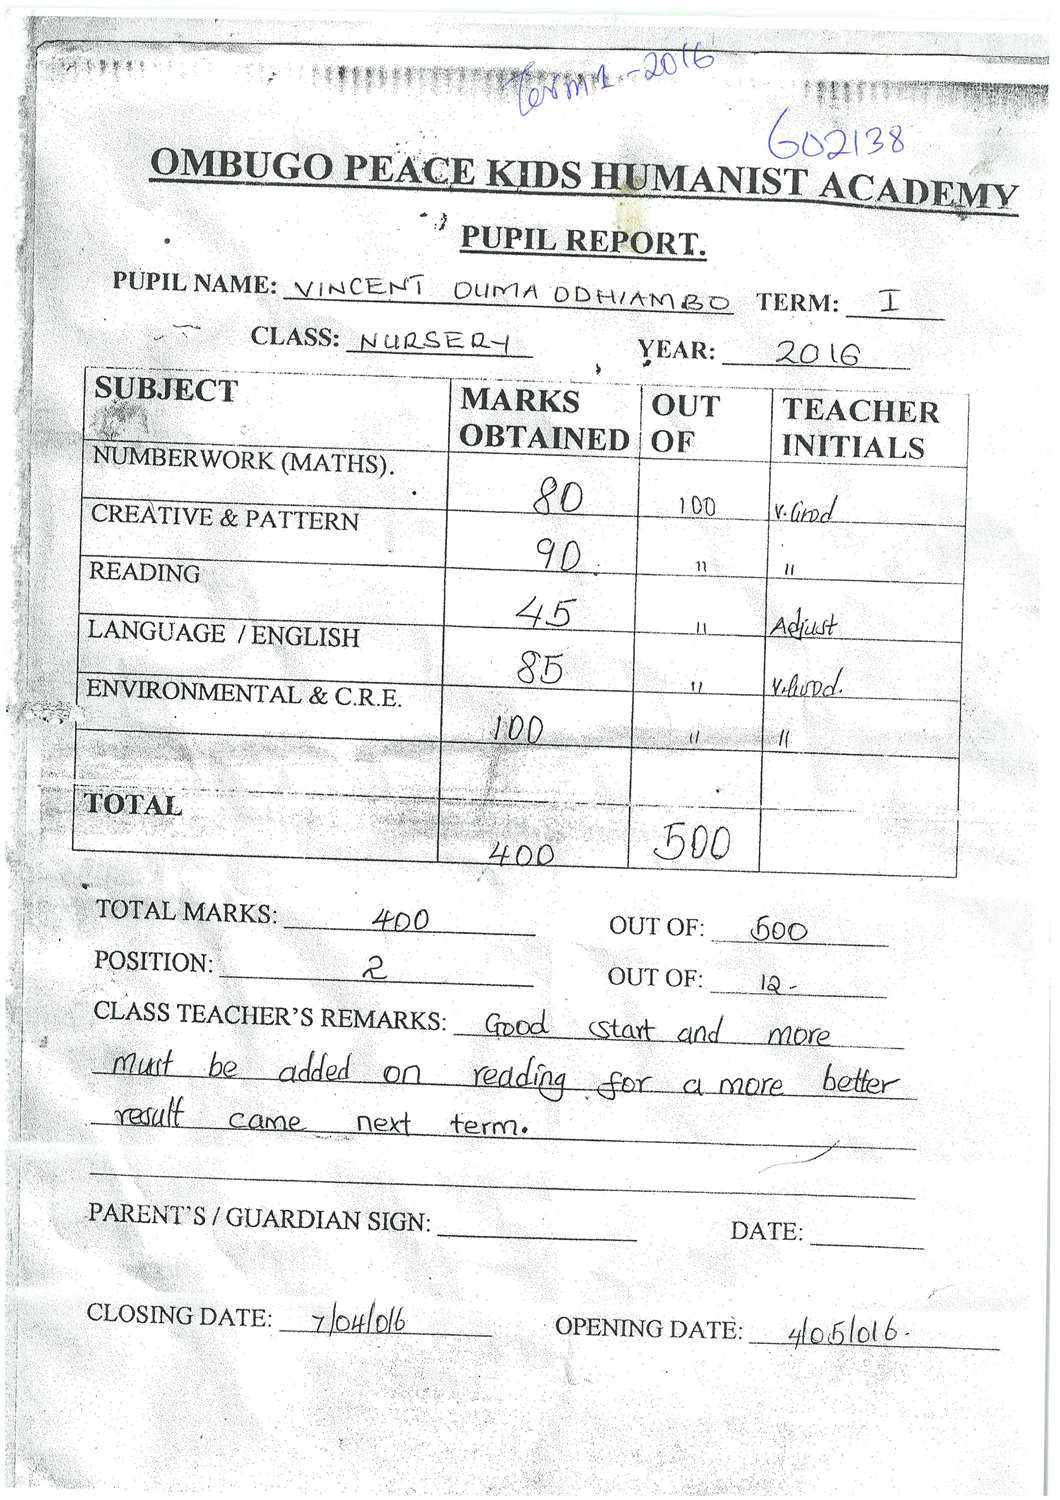 Term 1 - 2016
602138
OMBUGO PEACE KIDS HUMANIST ACADEMY
PUPIL REPORT.
PUPIL NAME: VINCENT OUMA ODHIAMBO TERM: I
CLASS: NURSERY YEAR: 2016
SUBJECT MARKS OBTAINED OUT OF TEACHER INITIALS
NUMBERWORK (MATHS). 80 100 V. Good
CREATIVE & PATTERN 90 " "
READING 45 " Adjust
LANGUAGE / ENGLISH 85 " V. Good.
ENVIRONMENTAL & C.R.E. 100 " "
TOTAL 400 500
TOTAL MARKS: 400 OUT OF: 500
POSITION: 2 OUT OF: 12 -
CLASS TEACHER'S REMARKS: Good start and more
must be added on reading for a more better
result came next term.
PARENT'S / GUARDIAN SIGN: DATE:
CLOSING DATE: 7/04/016 OPENING DATE: 4/05/016.